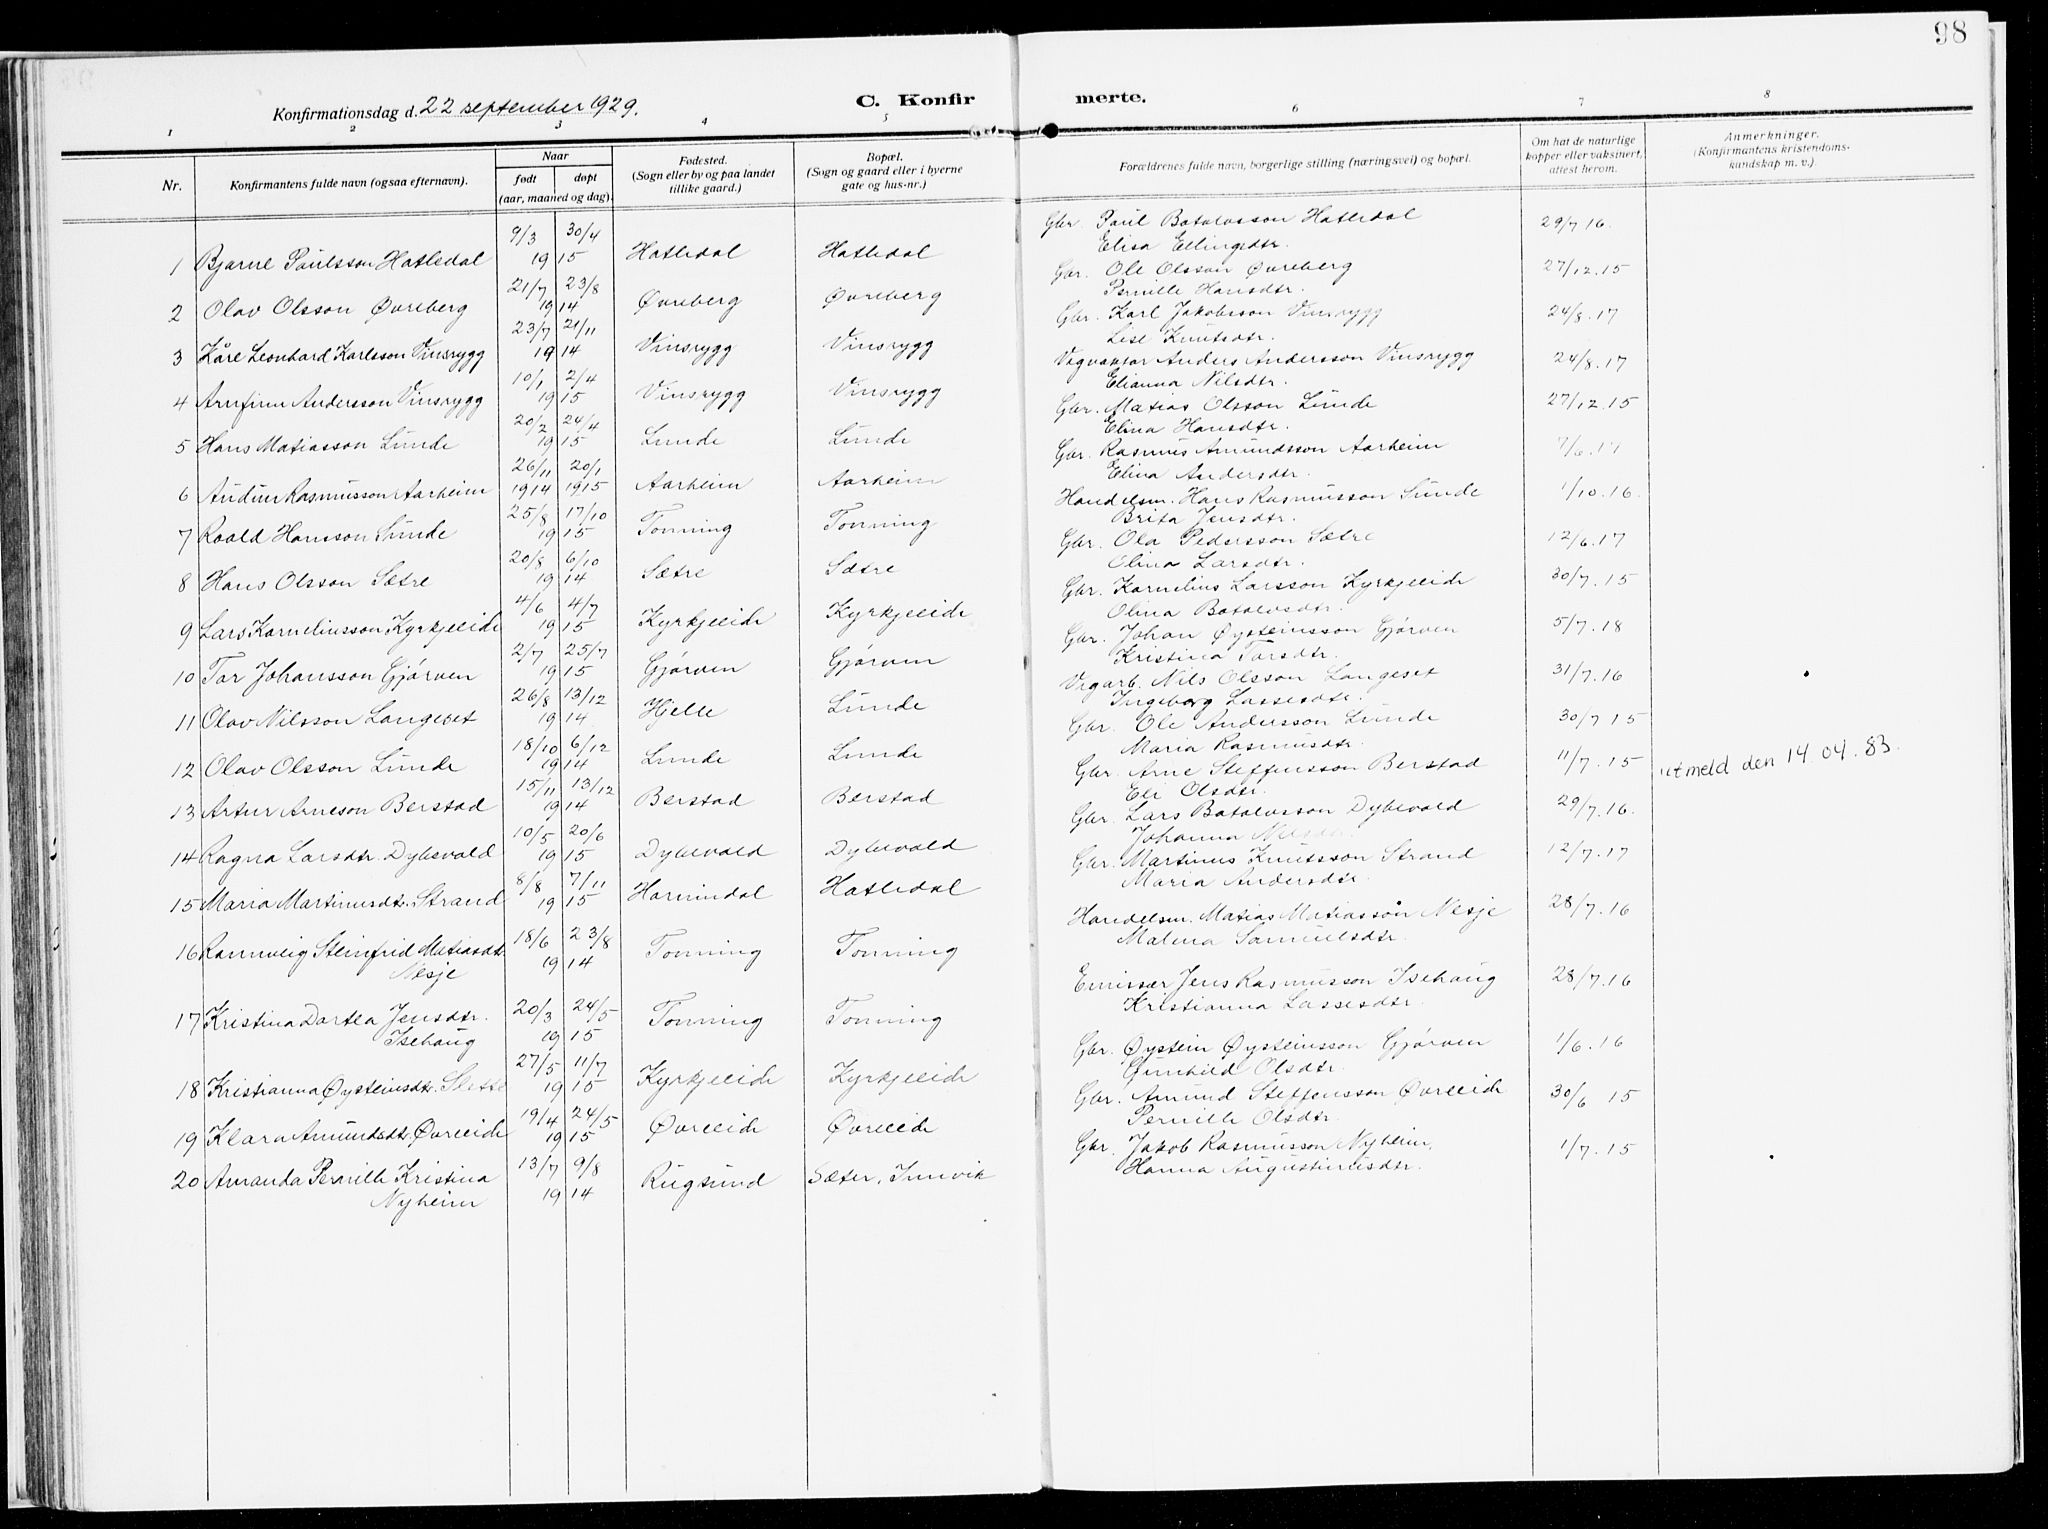 98
Konfirmationsdag d. 22 september 1929.
C. Konfir
merte.
1 2 3 4 5 6 7 8
Nr.
Konfirmantens fulde navn (ogsaa efternavn).
Naar
født døpt
(aar, maaned og dag).
Fødested.
(Sogn eller by og paa landet
tillike gaard.)
Bopæl.
(Sogn og gaard eller i byerne
gate og hus-nr.)
Forældrenes fulde navn, borgerlige stilling (næringsvei) og bopæl.
Om hat de naturlige
kopper eller vaksinert,
attest herom.
Anmerkninger.
(Konfirmantens kristendoms-
kundskap m. v.).
9/3 30/4 Gbr. Paul Batolvsson Hatledal 29/7 16.
1 Bjarne Paulsson Hatledal 19 15 Hatledal Hatledal Elisa Ellingsdtr.
21/7 23/8 Gbr. Ole Olsson Øvreberg 27/12.15
2 Olav Olsson Øvreberg 19 14 Øvreberg Øvreberg Pernille Hansdtr.
23/7 21/11 Gbr. Karl Jakobsson Vinsrygg 24/8.17
3 Kåre Leonhard Karlsson Vinsrygg 19 14 Vinsrygg Vinsrygg Lise Knutsdtr.
10/1 2/4 Anders Andersson Vinsrygg 24/8.17
4 Arnfinn Andersson Vinsrygg 19 15 Vinsrygg Vinsrygg Elianna Nilsdtr.
20/2 24/4 Gbr. Matias Olsson Lunde 27/12.15
5 Hans Matiasson Lunde 19 15 Lunde Lunde Elina Hansdtr.
26/11 20/1 Gbr. Rasmus Amundsson Aarheim 7/6.17
6 Audun Rasmusson Aarheim 1914 1915 Aarheim Aarheim Elina Andersdtr.
25/8 17/10 Handelsm. Hans Rasmusson Sunde 1/10.16.
7 Roald Hansson Sunde 19 15 Tonning Tonning Brita Jensdtr.
20/8 6/10 Gbr. Ola Pedersson Sætre 12/6.17
8 Hans Olsson Sætre 19 14 Sætre Sætre Elina Larsdtr.
4/6 4/7 Gbr. Kornelius Larsson Kyrkjeeide 30/7.15
9 Lars Korneliusson Kyrkjeeide 19 15 Kyrkjeeide Kyrkjeeide Olina Batolvsdtr.
2/7 25/7 Gbr. Johan Øysteinsson Gjørven 5/7.18
10 Tor Johansson Gjørven 19 15 Gjørven Gjørven Kristina Torsdtr.
26/8 13/12 Vegarb. Nils Olsson Langeset 31/7.16
11 Olav Nilsson Langeset 19 14 Hjelle Lunde Ingeborg Lassesdtr.
18/10 6/12 Gbr. Ole Andersson Lunde 30/7 15
12 Olav Olsson Lunde 19 14 Lunde Lunde Maria Rasmusdtr.
15/11 13/12 Gbr. Arne Steffensson Berstad 11/7.15 utmeld den 14.04.83.
13 Artur Arneson Berstad 19 14 Berstad Berstad Eli Olsdtr.
10/5 20/6 Gbr. Lars Batolvsson Dybevald 29/7.16.
14 Ragna Larsdtr. Dybevald 19 15 Dybevald Dybevald Johanna Nilsdtr.
8/8 7/11 Gbr. Martinus Knutsson Strand 12/7.17
15 Maria Martinusdtr. Strand 19 15 Hornindal Hatledal Maria Andersdtr.
18/6 23/8 Handelsm. Matias Matiasson Nesje 28/7.16
16 Rannveig Steinfrid Matiasdtr. Tonning Tonning Malena Samuelsdtr.
Nesje 19 14
20/3 24/5 Emissær Jens Rasmusson Isehaug 28/7.16
17 Kristina Dortea Jensdtr. Tonning Tonning Kristianna Lassesdtr.
Isehaug 19 15
27/5 11/7 Gbr. Øystein Øysteinsson Gjørven 1/6.16
18 Kristianna Øysteinsdtr. Slette 19 15 Kyrkjeeide Kyrkjeeide Gunhild Olsdtr.
19/4 24/5 Gbr. Amund Steffensson Øvreeide 30/6 15
19 Klara Amundsdtr. Øvreeide 19 15 Øvreeide Øvreeide Pernille Olsdtr.
13/7 9/8 Gbr. Jakob Rasmusson Nyheim, 1/7.15
20 Amanda Pernille Kristina Rugsund Sæter, Innvik Hanna Augustinusdtr.
Nyheim 19 14